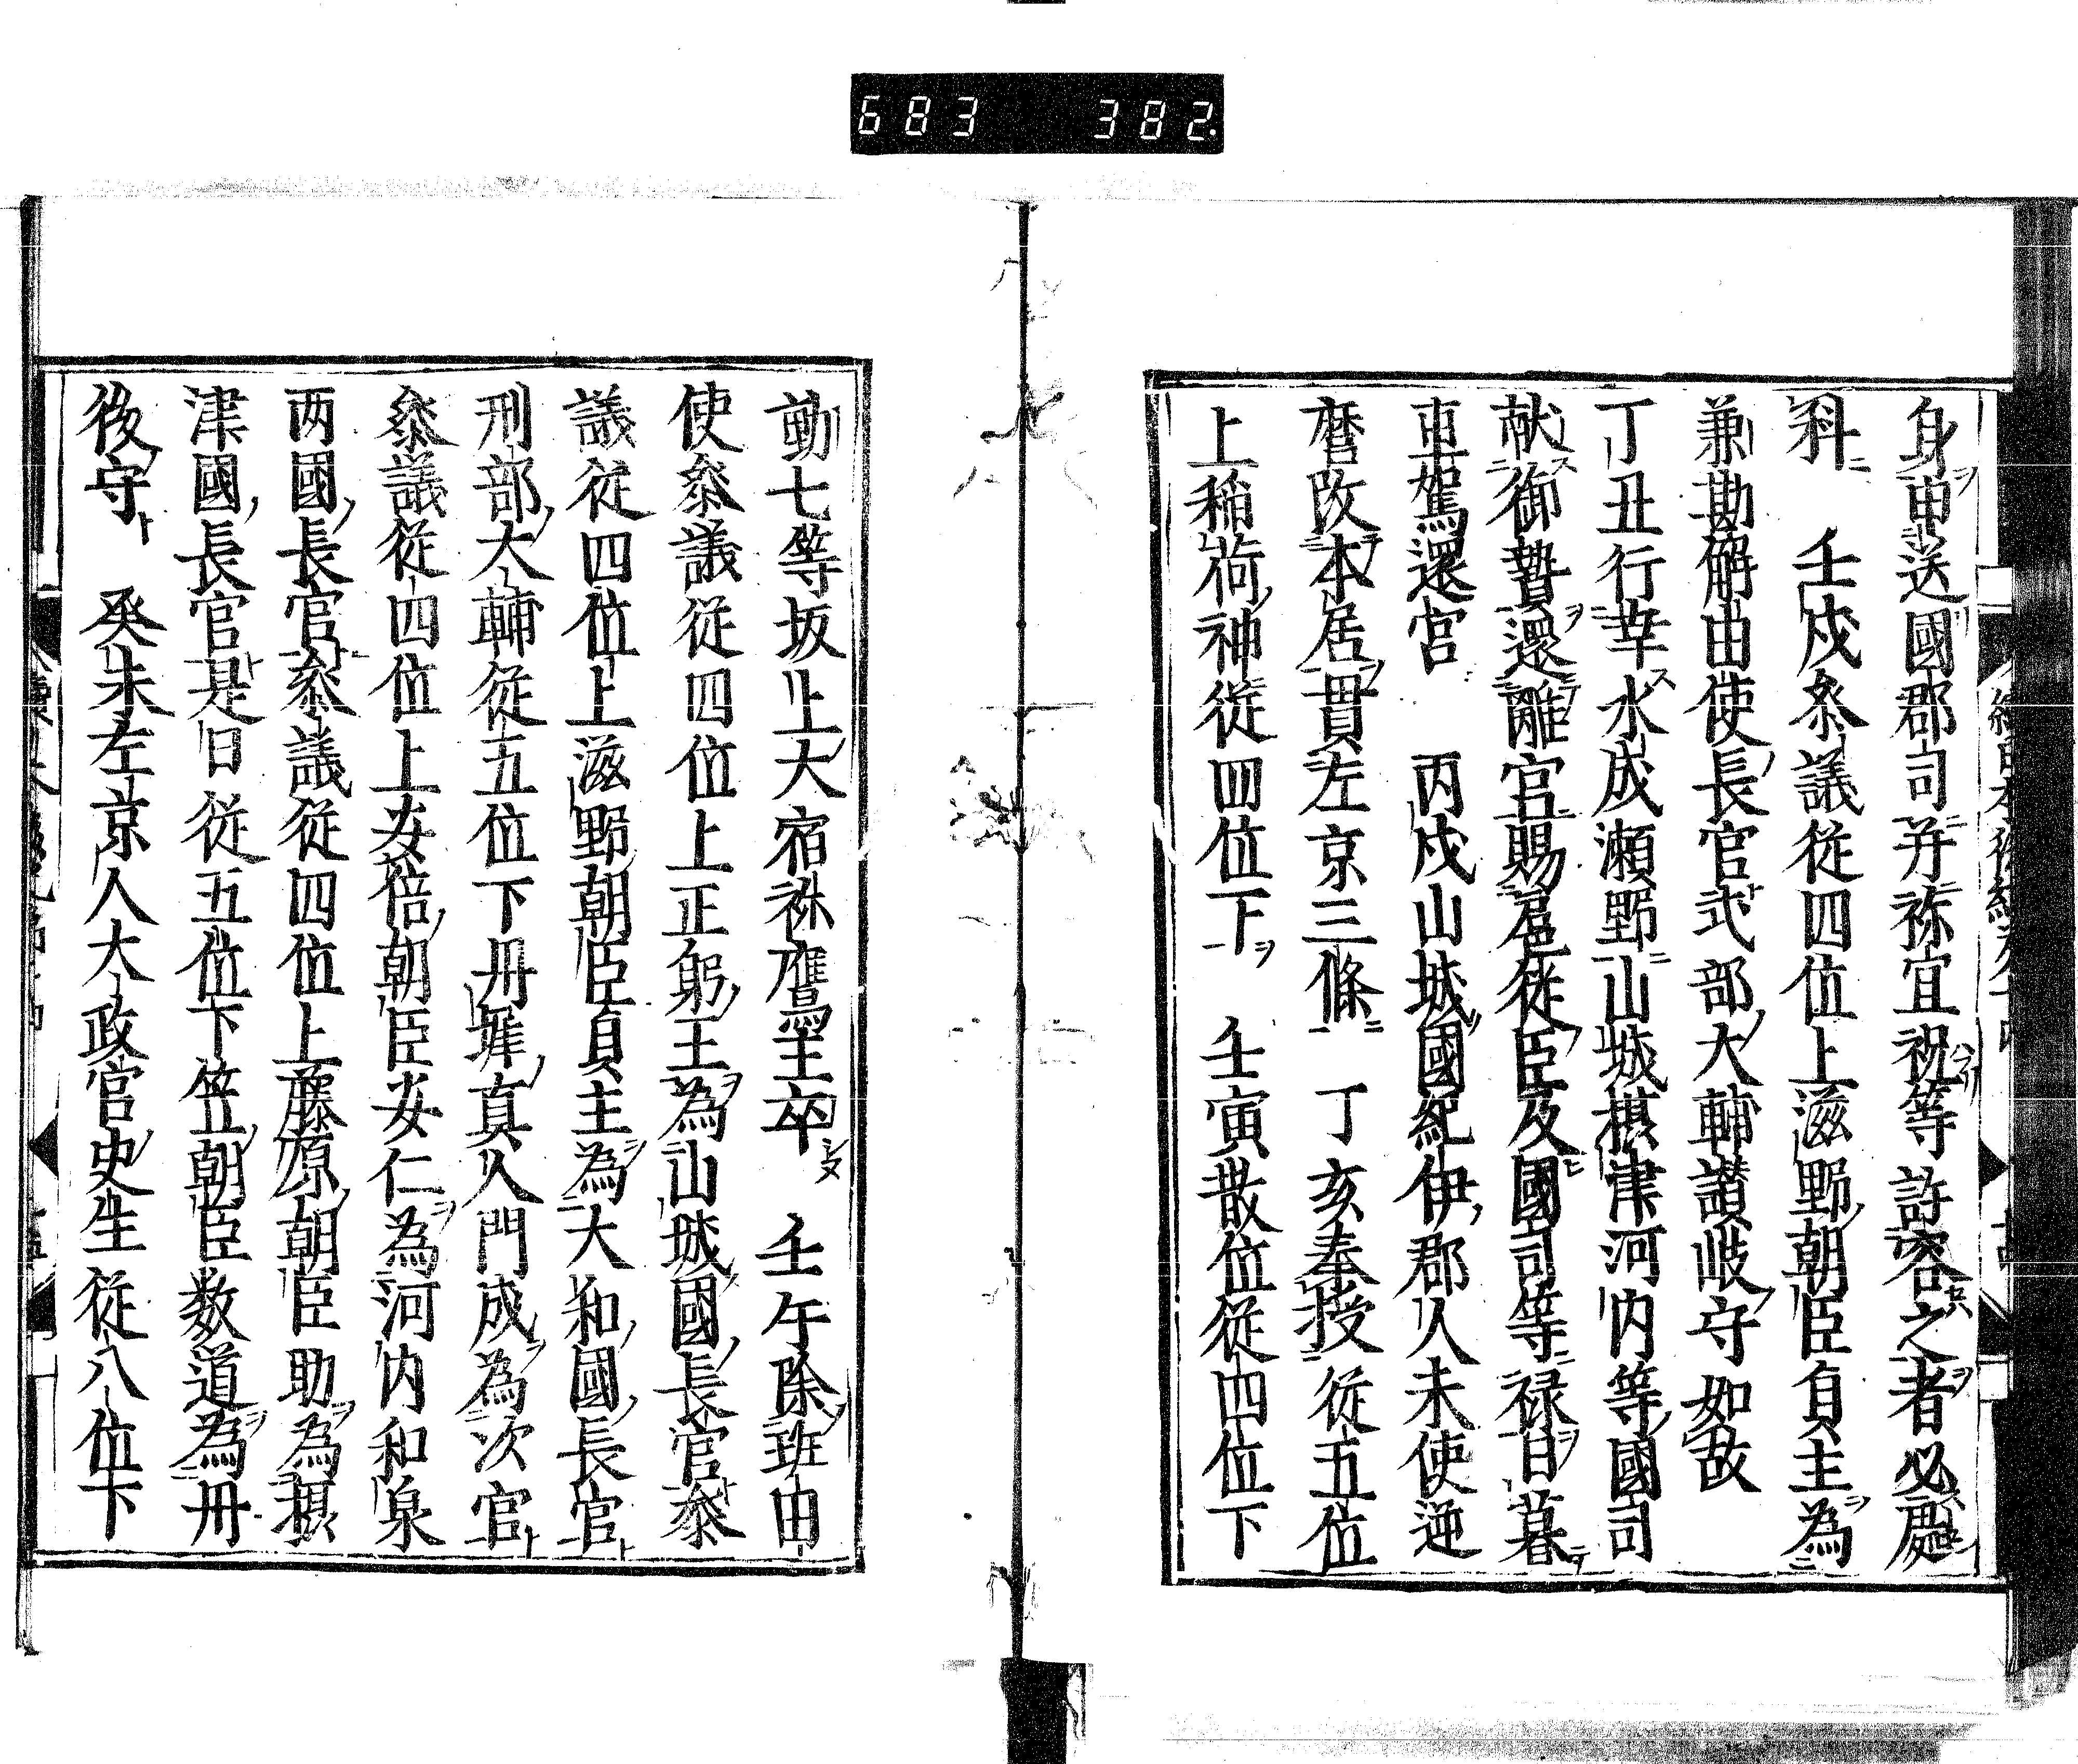 683 382.
身申送國郡司并祢宜祝等許容之者必處
科 壬戌叅議從四位上滋野朝臣貞主為
兼勘解由使長官式部大輔讃岐守如故
丁丑行幸水成瀬野山城摂津河内等國司
献御贄還離宮賜扈從臣及國司等禄日暮
車駕還宮 丙戌山城國紀伊郡人末使逆
麿改本居貫左京三條 丁亥奉授從五位
上稲荷神從四位下 壬寅散位從四位下
勳七等坂上大宿祢鷹養卒 壬午除班田
使叅議從四位上正躬王為山城國長官叅
議從四位上滋野朝臣貞主為大和國長官
刑部大輔從五位下丹墀真人門成為次官
叅議從四位上安倍朝臣安仁為河内和泉
两國長官叅議從四位上藤原朝臣助為摂
津國長官是日從五位下笠朝臣数道為丹
後守 癸未左京人大政官史生從八位下